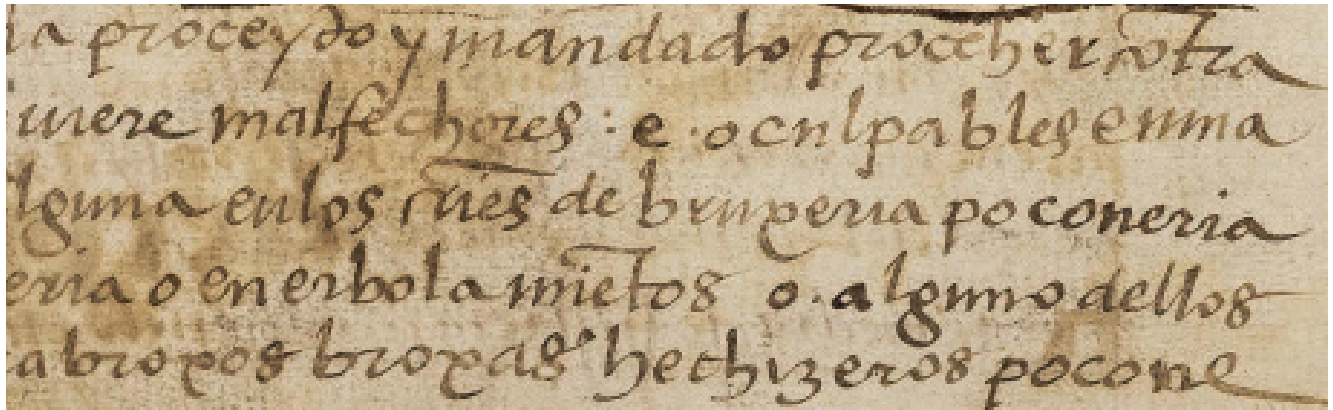 ha proceydo y mandado proceher cõtra
uiere malfechores : e . o culpables en una
lguna en los crı̃es de bruxeria poconeria
eria o en erbolamiẽtos o . alguno dellos
a broxos broxas hechizeros pocone